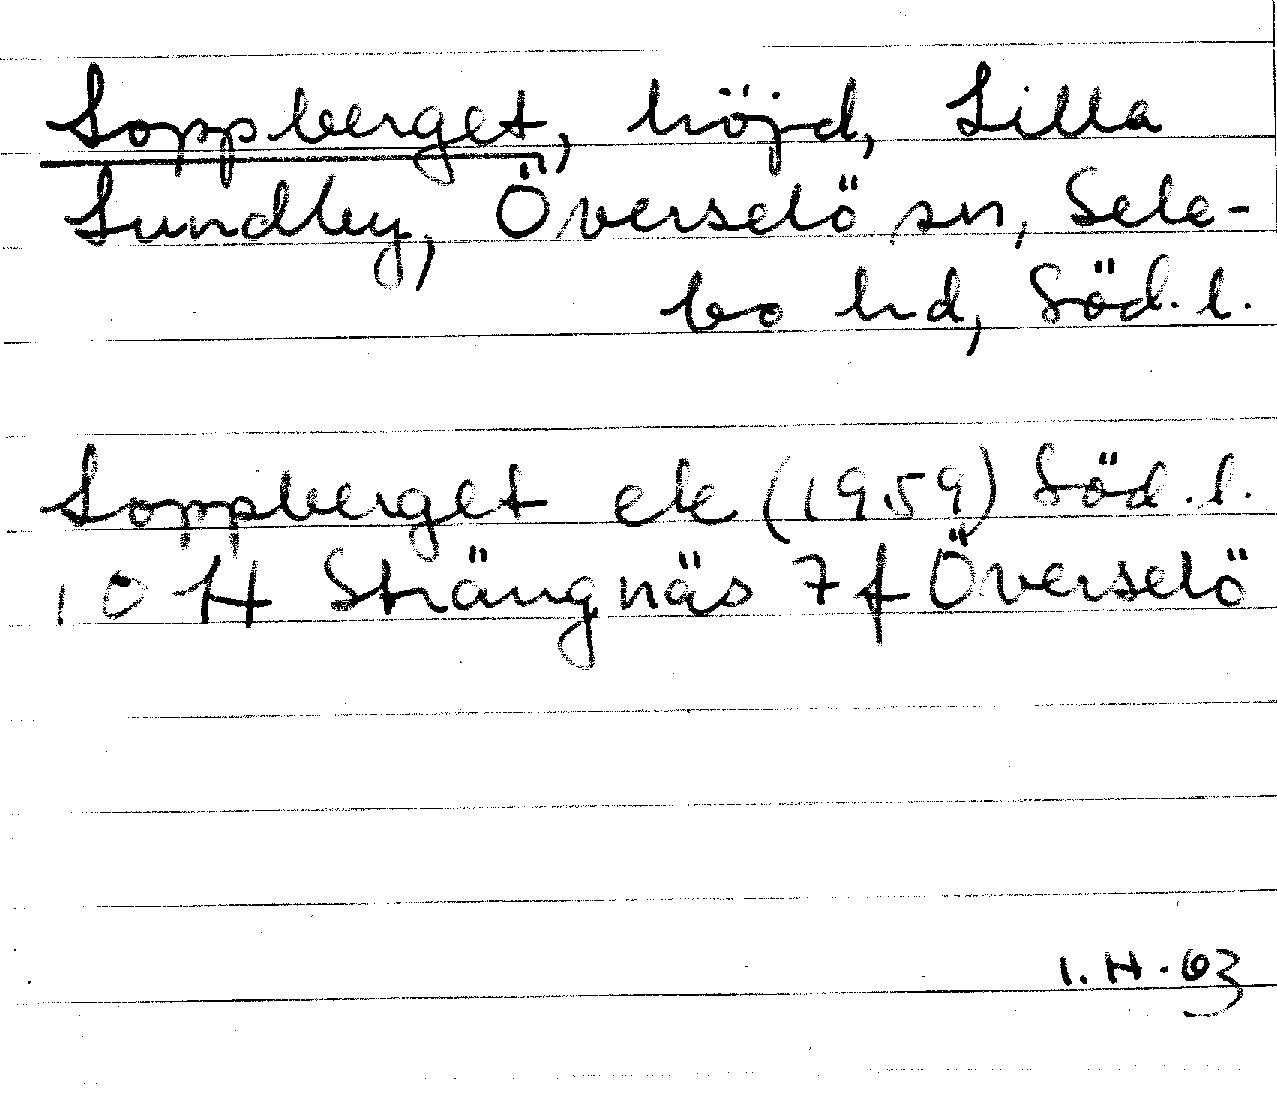 Loppberget, höjd, Lilla
Lundby, Överselö sn, Sele-
bo hd, Söd.l.
Loppberget ek (1959) Söd.l.
10 H Strängnäs 7 f Överselö
I.H.63